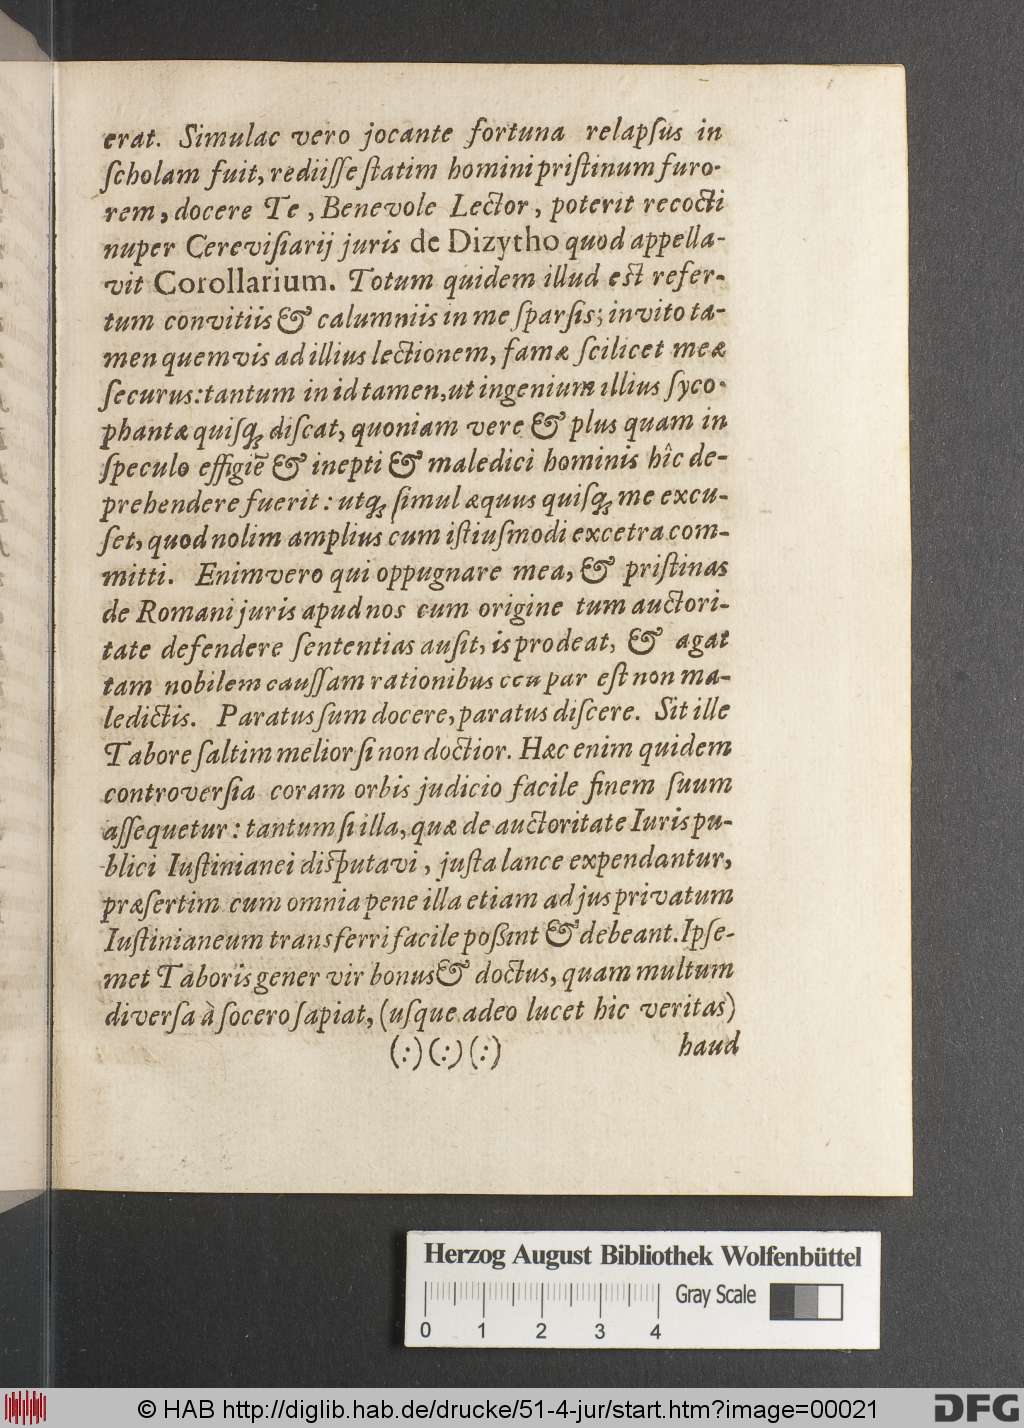 erat. Simulac vero jocante fortuna relapſus in
ſcholam fuit, rediiſſe ſtatim homini priſtinum furo-
rem, docere Te, Benevole Lector, poterit recocti
nuper Cereviſiarij juris de Dizytho quod appella-
vit Corollarium. Totum quidem illud est refer-
tum convitiis & calumniis in me ſparſis; invito ta-
men quemvis ad illius lectionem, famæ ſcilicet meæ
ſecurus: tantum in id tamen, ut ingenium illius ſyco-
phantæ quiſq; diſcat, quoniam vere & plus quam in
ſpeculo effigiē & inepti & maledici hominis hîc de-
prehendere fuerit: utq; ſimul æquus quiſq; me excu-
ſet, quod nolim amplius cum iſtiuſmodi excetra com-
mitti. Enimvero qui oppugnare mea, & priſtinas
de Romani juris apud nos cum origine tum auctori-
tate defendere ſententias auſit, is prodeat, & agat
tam nobilem cauſſam rationibus ceu par eſt non ma-
ledictis. Paratus ſum docere, paratus diſcere. Sit ille
Tabore ſaltim melior ſi non doctior. Hæc enim quidem
controverſia coram orbis judicio facile finem ſuum
aſſequetur: tantum ſi illa, quæ de auctoritate Iuris pu-
blici Iuſtinianei diſputavi, juſta lance expendantur,
præſertim cum omnia pene illa etiam ad jus privatum
Iuſtinianeum transferri facile poßint & debeant. Ipſe-
met Taboris gener vir bonus & doctus, quam multum
diverſa à ſocero ſapiat, (uſque adeo lucet hic veritas)
(:) (:) (:) haud
Herzog August Bibliothek Wolfenbüttel
Gray Scale
0 1 2 3 4
© HAB http://diglib.hab.de/drucke/51-4-jur/start.htm?image=00021
DFG